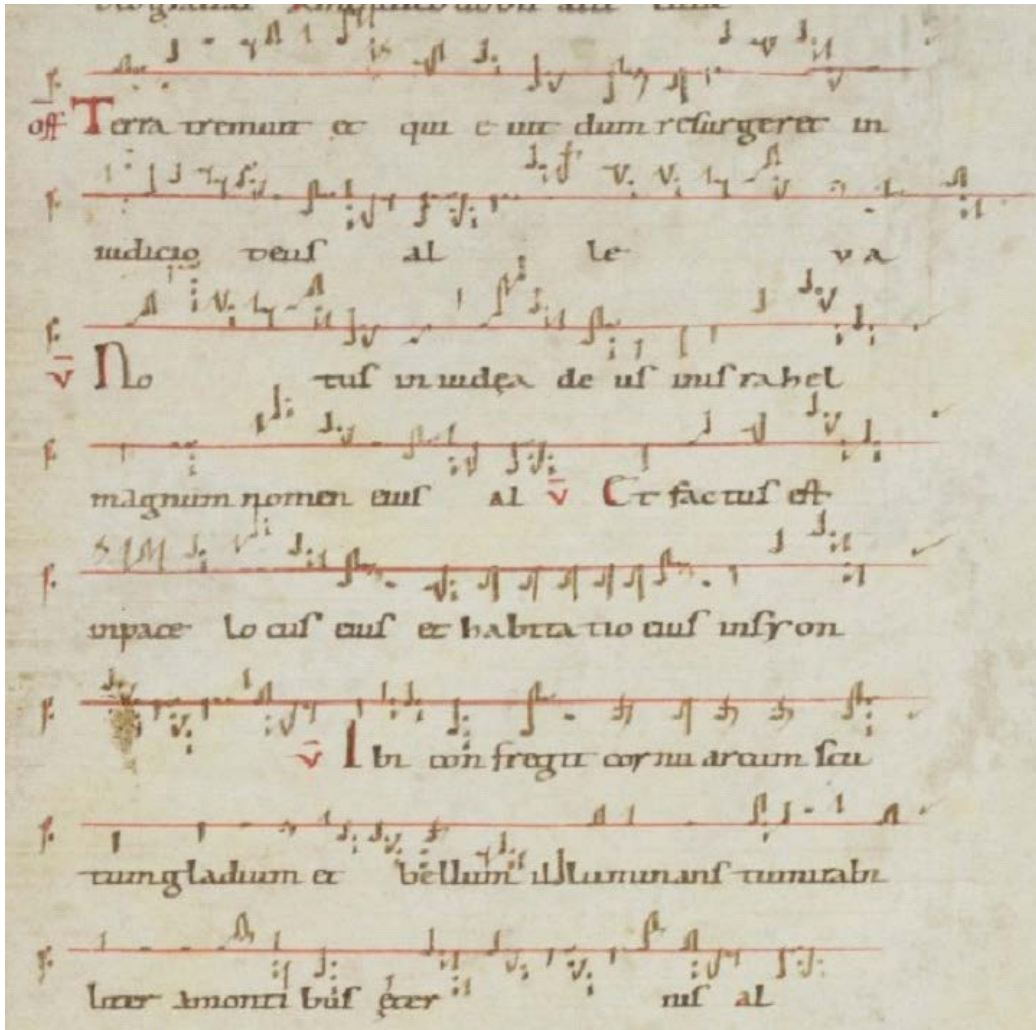 off Terra tremuit et qui e uit dum resurgeret in
iudicio deus al le va
v No tus in iudęa de us inisrahel
magnum nomen eius al v Et factus est
inpace lo cus eius et habitatio eius insyon
v Ibi con fregit cornu arcum scu
tum gladium et bellum illuminans tu mirabi
liter amonti bus ęter nis al